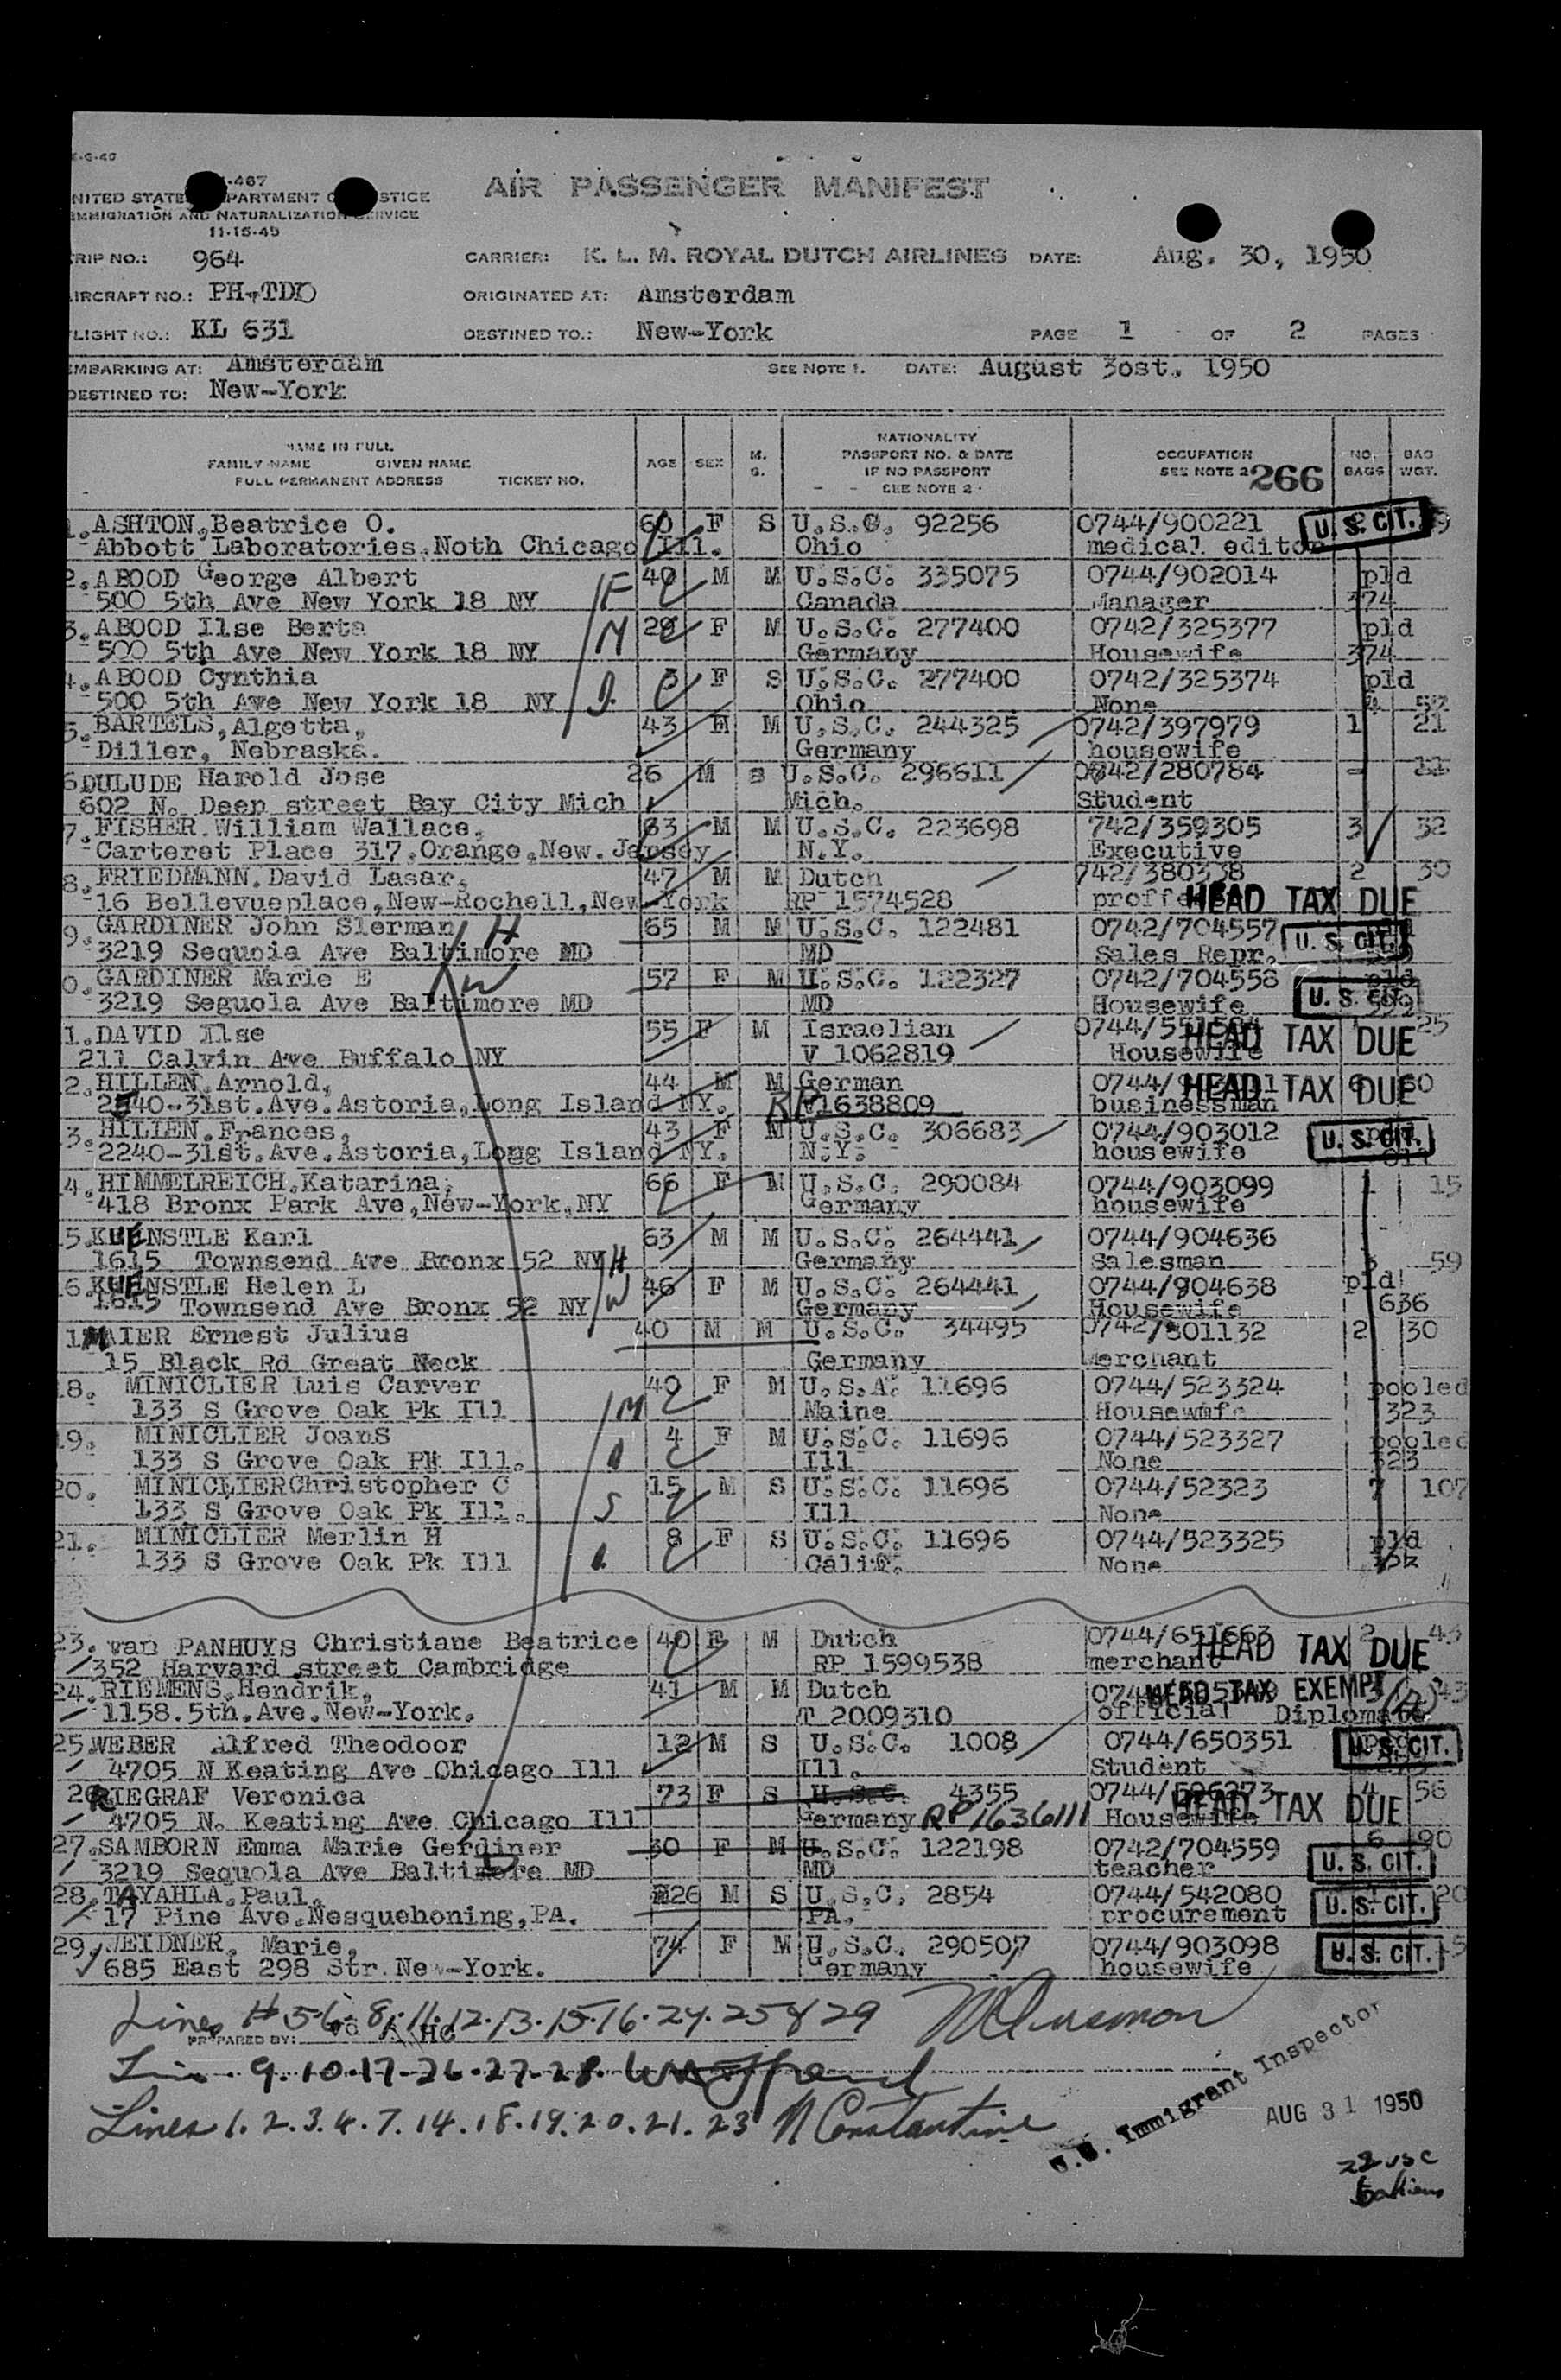 UNITED STATES DEPARTMENT OF JUSTICE
IMMIGRATION AND NATURALIZATION SERVICE
11-15-45
AIR PASSENGER MANIFEST
TRIP NO.: 964 CARRIER: K. L. M. ROYAL DUTCH AIRLINES DATE: Aug. 30, 1950
AIRCRAFT NO.: PH-TDD ORIGINATED AT: Amsterdam
FLIGHT NO.: KL 631 DESTINED TO.: New-York PAGE 1 OF 2 PAGES
EMBARKING AT: Amsterdam SEE NOTE 1. DATE: August 3ost. 1950
DESTINED TO: New-York
NAME IN FULL
FAMILY NAME GIVEN NAME
FULL PERMANENT ADDRESS TICKET NO.
AGE SEX M. S.
NATIONALITY
PASSPORT NO. & DATE
IF NO PASSPORT
SEE NOTE 2
OCCUPATION
SEE NOTE 2 266
NO. BAGS BAG WGT.
1. ASHTON, Beatrice O. 60 F S U.S.C. 92256 0744/900221 U.S. CIT.
Abbott Laboratories, Noth Chicago Ill. Ohio medical editor
2. ABOOD George Albert 40 M M U.S.C. 335075 0744/902014 pld
500 5th Ave New York 18 NY F Canada Manager 374
3. ABOOD Ilse Berta 29 F M U.S.C. 277400 0742/325377 pld
500 5th Ave New York 18 NY M Germany Housewife 374
4. ABOOD Cynthia 3 F S U.S.C. 277400 0742/325374 pld
500 5th Ave New York 18 NY D. Ohio None 4 57
5. BARTELS, Algetta, 43 M U.S.C. 244325 0742/397979 1 21
Diller, Nebraska. Germany housewife
6 DULUDE Harold Jose 26 M S U.S.C. 296611 0742/280784 - 11
602 N. Deep street Bay City Mich Mich. Student
7. FISHER. William Wallace. 63 M M U.S.C. 223698 742/359305 3 32
Carteret Place 317. Orange. New. Jersey N.Y. Executive
8. FRIEDMANN. David Lasar. 47 M M Dutch 742/380338 2 30
16 Bellevueplace, New-Rochell, New-York RP 1574528 HEAD TAX DUE
9. GARDINER John Slerman H 65 M M U.S.C. 122481 0742/704557 U.S. CIT.
3219 Sequoia Ave Baltimore MD MD Sales Repr.
10. GARDINER Marie E W 57 F M U.S.C. 122327 0742/704558 pld
3219 Seguola Ave Baltimore MD MD Housewife U.S. CIT. 599
11. DAVID Ilse 55 F M Israelian 25
211 Calvin Ave Buffalo NY V 1062819 Housewife HEAD TAX DUE
12. HILLEN. Arnold. 44 M M German HEAD TAX DUE 60
2240-31st. Ave. Astoria, Long Island NY. RP V1638809 businessman
13. HILLEN. Frances. 43 F M U.S.C. 306683 0744/903012 U.S. CIT.
2240-31st. Ave. Astoria, Long Island NY. N.Y. housewife
14. HIMMELREICH. Katarina. 66 F M U.S.C. 290084 0744/903099 1 15
418 Bronx Park Ave, New-York. NY Germany housewife
15. KUENSTLE Karl 63 M M U.S.C. 264441 0744/904636
1615 Townsend Ave Bronx 52 NY H Germany Salesman 59
16. KUENSTLE Helen L 46 F M U.S.C. 264441 0744/904638 pld
1615 Townsend Ave Bronx 52 NY W Germany Housewife 636
1 MAIER Ernest Julius 40 M M U.S.C. 34495 0742/801132 2 30
15 Black Rd Great Neck Germany Merchant
18. MINICLIER Luis Carver 40 F M U.S.A. 11696 0744/523324 pooled
133 S Grove Oak Pk Ill M Maine Housewife 323
19. MINICLIER JoanS 4 F M U.S.C. 11696 0744/523327 pooled
133 S Grove Oak Pk Ill. Ill None 323
20. MINICLIERChristopher C 15 M S U.S.C. 11696 0744/52323 7 107
133 S Grove Oak Pk Ill. S Ill None
21. MINICLIER Merlin H 8 F S U.S.C. 11696 0744/523325 pld
133 S Grove Oak Pk Ill Calif. None
23. van PANHUYS Christiane Beatrice 40 F M Dutch 0744/651663 2 43
352 Harvard street Cambridge RP 1599538 merchant HEAD TAX DUE
24. RIEMENS. Hendrik. 41 M M Dutch HEAD TAX EXEMPT 43
1158. 5th. Ave. New-York. T 2009310 official Diplomate
25. WEBER Alfred Theodoor 12 M S U.S.C. 1008 0744/650351 U.S. CIT.
4705 N Keating Ave Chicago Ill Ill. Student
26 RIEGRAF Veronica 73 F S U.S.C. 4355 0744/506273 4 56
4705 N. Keating Ave Chicago Ill Germany RP1636111 Housewife HEAD TAX DUE
27. SAMBORN Emma Marie Gerdiner 30 F M U.S.C. 122198 0742/704559 6 90
3219 Sequola Ave Baltimore MD MD teacher U.S. CIT.
28. TAYAHLA. Paul. 26 M S U.S.C. 2854 0744/542080 20
17 Pine Ave. Nesquehoning, PA. PA. procurement U.S. CIT.
29. WEIDNER. Marie. 74 F M U.S.C. 290507 0744/903098
685 East 298 Str. New-York. Germany housewife U.S. CIT.
Lines # 5·6·8·11·12·13·15·16·24·25 & 29
PREPARED BY:
9·10·17-26-27-28.
Lines 1.2.3.4.7.14.18.19.20.21.23 N Constantine
U.S. Immigrant Inspector
AUG 31 1950
22 USC